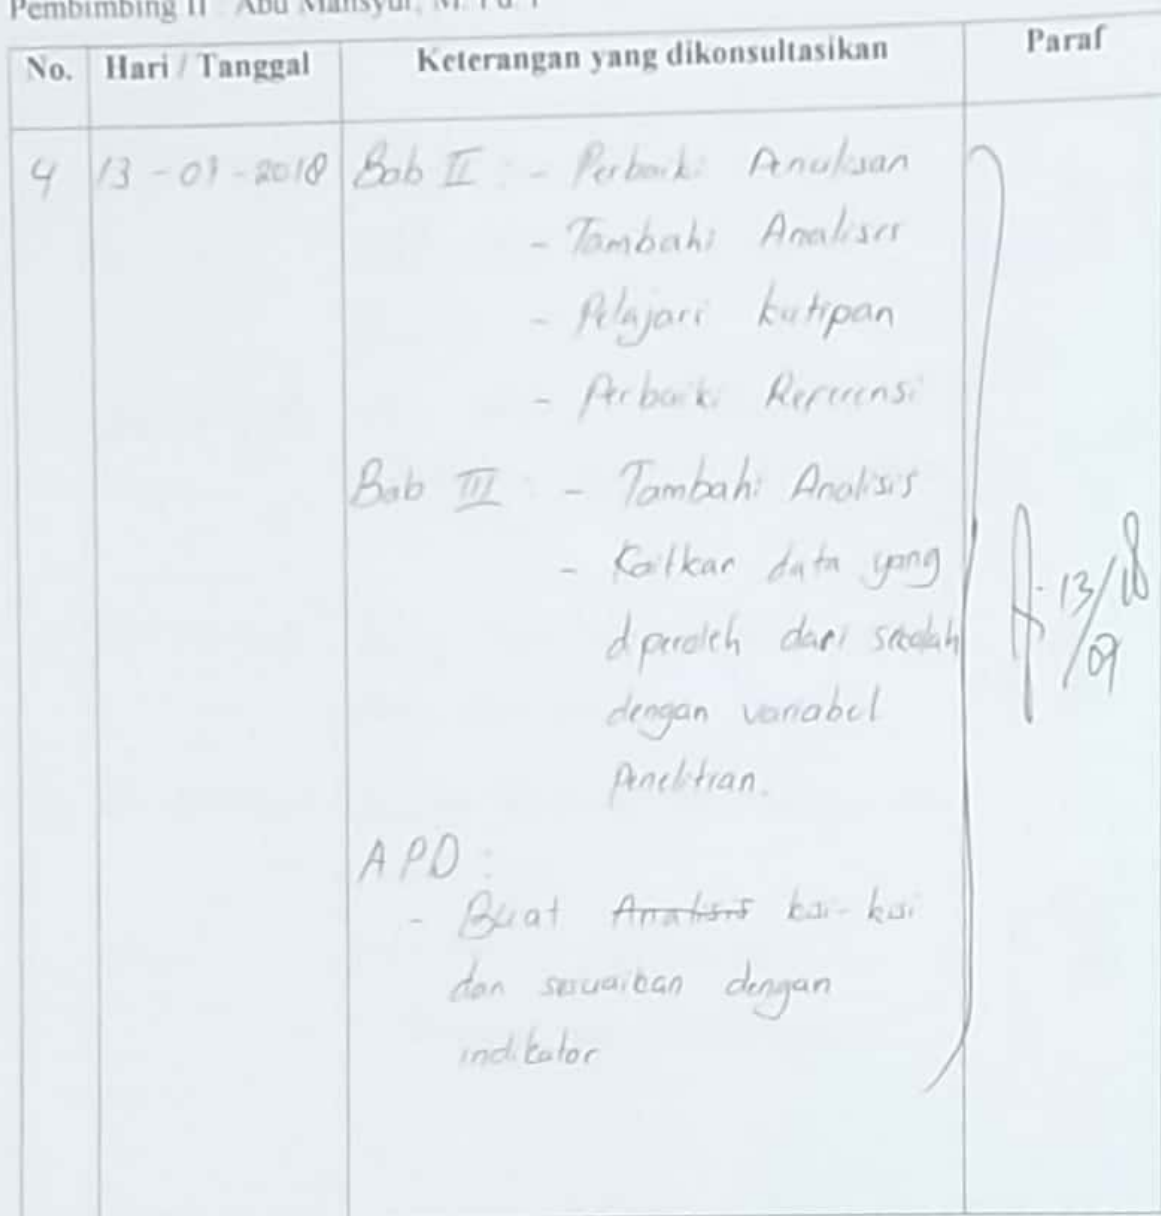 Pembimbing II : Abu Mansyur, M. Pd. I
No. Hari / Tanggal Keterangan yang dikonsultasikan Paraf
4 13 - 09 - 2018 Bab II : - Perbaiki Penulisan
- Tambahi Analisis
- Pelajari kutipan
- Perbaiki Referensi
Bab III : - Tambahi Analisis
- Kaitkan data yang
diperoleh dari sekolah
dengan variabel
Penelitian.
13/18
/09
APD :
- Buat Analisis kisi-kisi
dan sesuaikan dengan
indikator